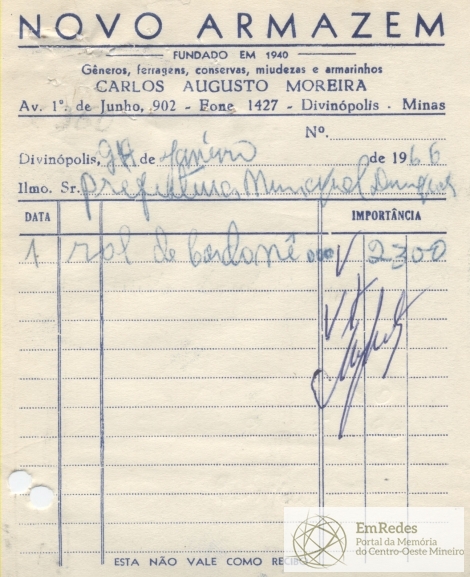 NOVO ARMAZEM
FUNDADO EM 1940
Gêneros, ferragens, conservas, miudezas e armarinhos
CARLOS AUGUSTO MOREIRA
Av. 1º. de Junho, 902 - Fone 1427 - Divinópolis - Minas
Nº.
Divinópolis, de Janeiro de 1966
Ilmo. Sr. Prefeitura Municipal
DATA IMPORTÂNCIA
1 rol de 2300
ESTA NÃO VALE COMO
EmRedes
Portal da Memória
do Centro-Oeste Mineiro